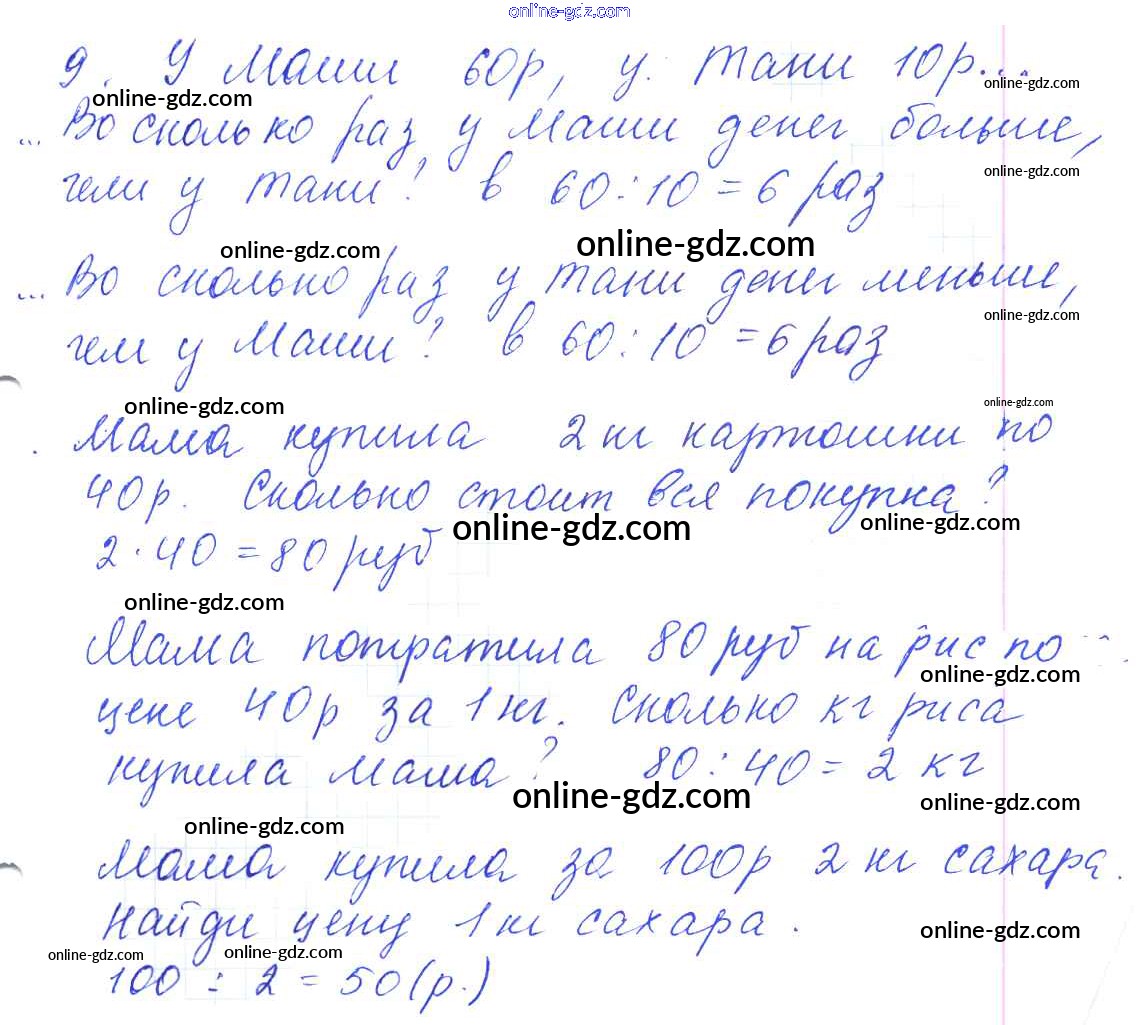 online-gdz.com
9. У Маши 60р, у Тани 10р...
online-gdz.com online-gdz.com
... Во сколько раз у Маши денег больше,
online-gdz.com
чем у Тани? в 60:10=6 раз
online-gdz.com online-gdz.com
... Во сколько раз у Тани денег меньше,
online-gdz.com
чем у Маши? в 60:10=6 раз
online-gdz.com online-gdz.com
. Мама купила 2 кг картошки по
40р. Сколько стоит вся покупка?
online-gdz.com online-gdz.com
2·40=80 руб
online-gdz.com
Мама потратила 80 руб на рис по
online-gdz.com
цене 40р за 1 кг. Сколько кг риса
купила мама? 80:40=2 кг
online-gdz.com online-gdz.com
online-gdz.com
Мама купила за 100р 2 кг сахара.
Найди цену 1 кг сахара.
online-gdz.com
online-gdz.com online-gdz.com
100 : 2 = 50(р.)